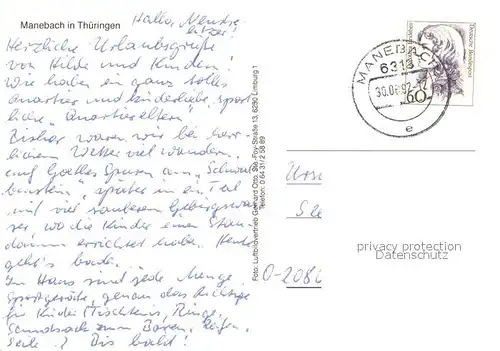 Manebach in Thüringen
Hallo, Neustre-
litzer!
Herzliche Urlaubsgrüße
von Hilde und Kindern!
Wir haben ein ganz tolles
Quartier und kinderliebe, sport-
liche "Quartiereltern".
Bisher waren wir bei herr-
lichem Wetter viel wandern,
auf Goethes Spuren am "Schwal-
benstein", später in ein Tal
mit viel sauberem Gebirgswas-
ser, wo die Kinder einen Stau-
damm errichtet haben. Heute
geht's baden.
Im Haus sind jede Menge
Sportgeräte, genau das Richtige
für Kinder (Tischtennis, Ringe,
Sandsack zum Boxen, Reifen,
Seile. ) Bis bald!
Foto: Luftbildvertrieb Gerhard Otto, Ste.-Foy-Straße 13, 6250 Limburg 1
Telefon: 0 64 31/2 58 89
MANEBACH
6313
30.06.92-12
e
Deutsche Bundespost
60
Urs
O-208
privacy protection
Datenschutz